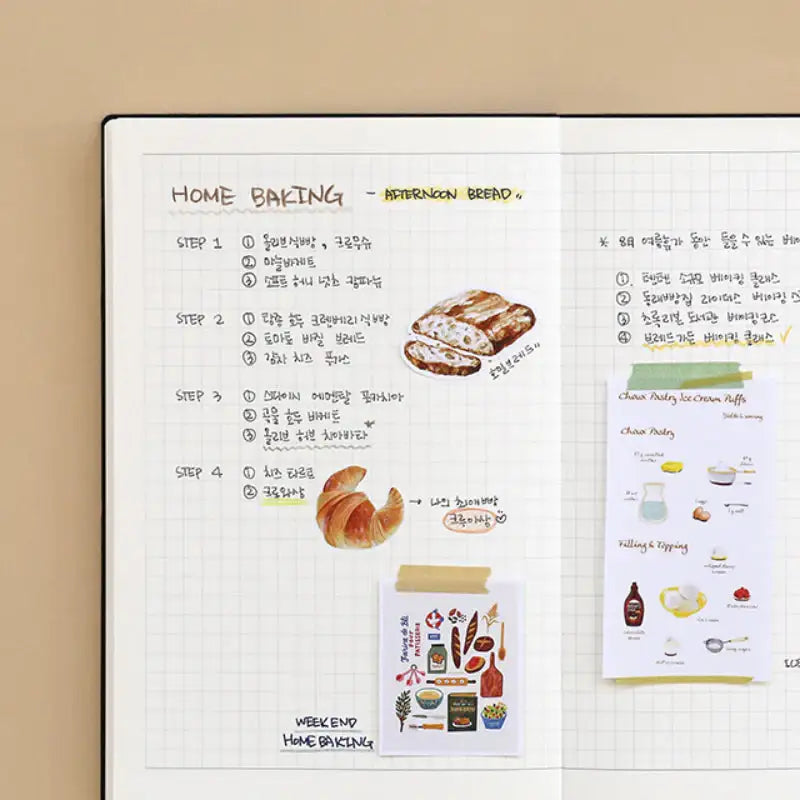 HOME BAKING - AFTERNOON BREAD
STEP 1 ① 올리브식빵, 크로무슈
② 마늘바게트
③ 소프트 허니 넛츠 캄파뉴
STEP 2 ① 단종 호두 크랜베리 식빵
② 토마토 바질 브레드
③ 감자 치즈 푸가스
STEP 3 ① 스파이시 에멘탈 포카치아
② 곡물 호두 바게트
③ 올리브 허브 치아바타
STEP 4 ① 치즈 타르트
② 크로와상
호밀브레드
→ 나의 최애빵
크루아상
WEEKEND
HOME BAKING
Farine de blé
POUR
PATISSERIE
※ 8월 여름휴가 동안 들을 수 있는
① 텐텐 소규모 베이킹 클래스
② 동래빵집 라이더스 베이킹
③ 초록리본 도서관 베이킹코스
④ 브레드가든 베이킹 클래스 ✓
Choux Pastry Ice Cream Puffs
Choux Pastry
Filling & Topping